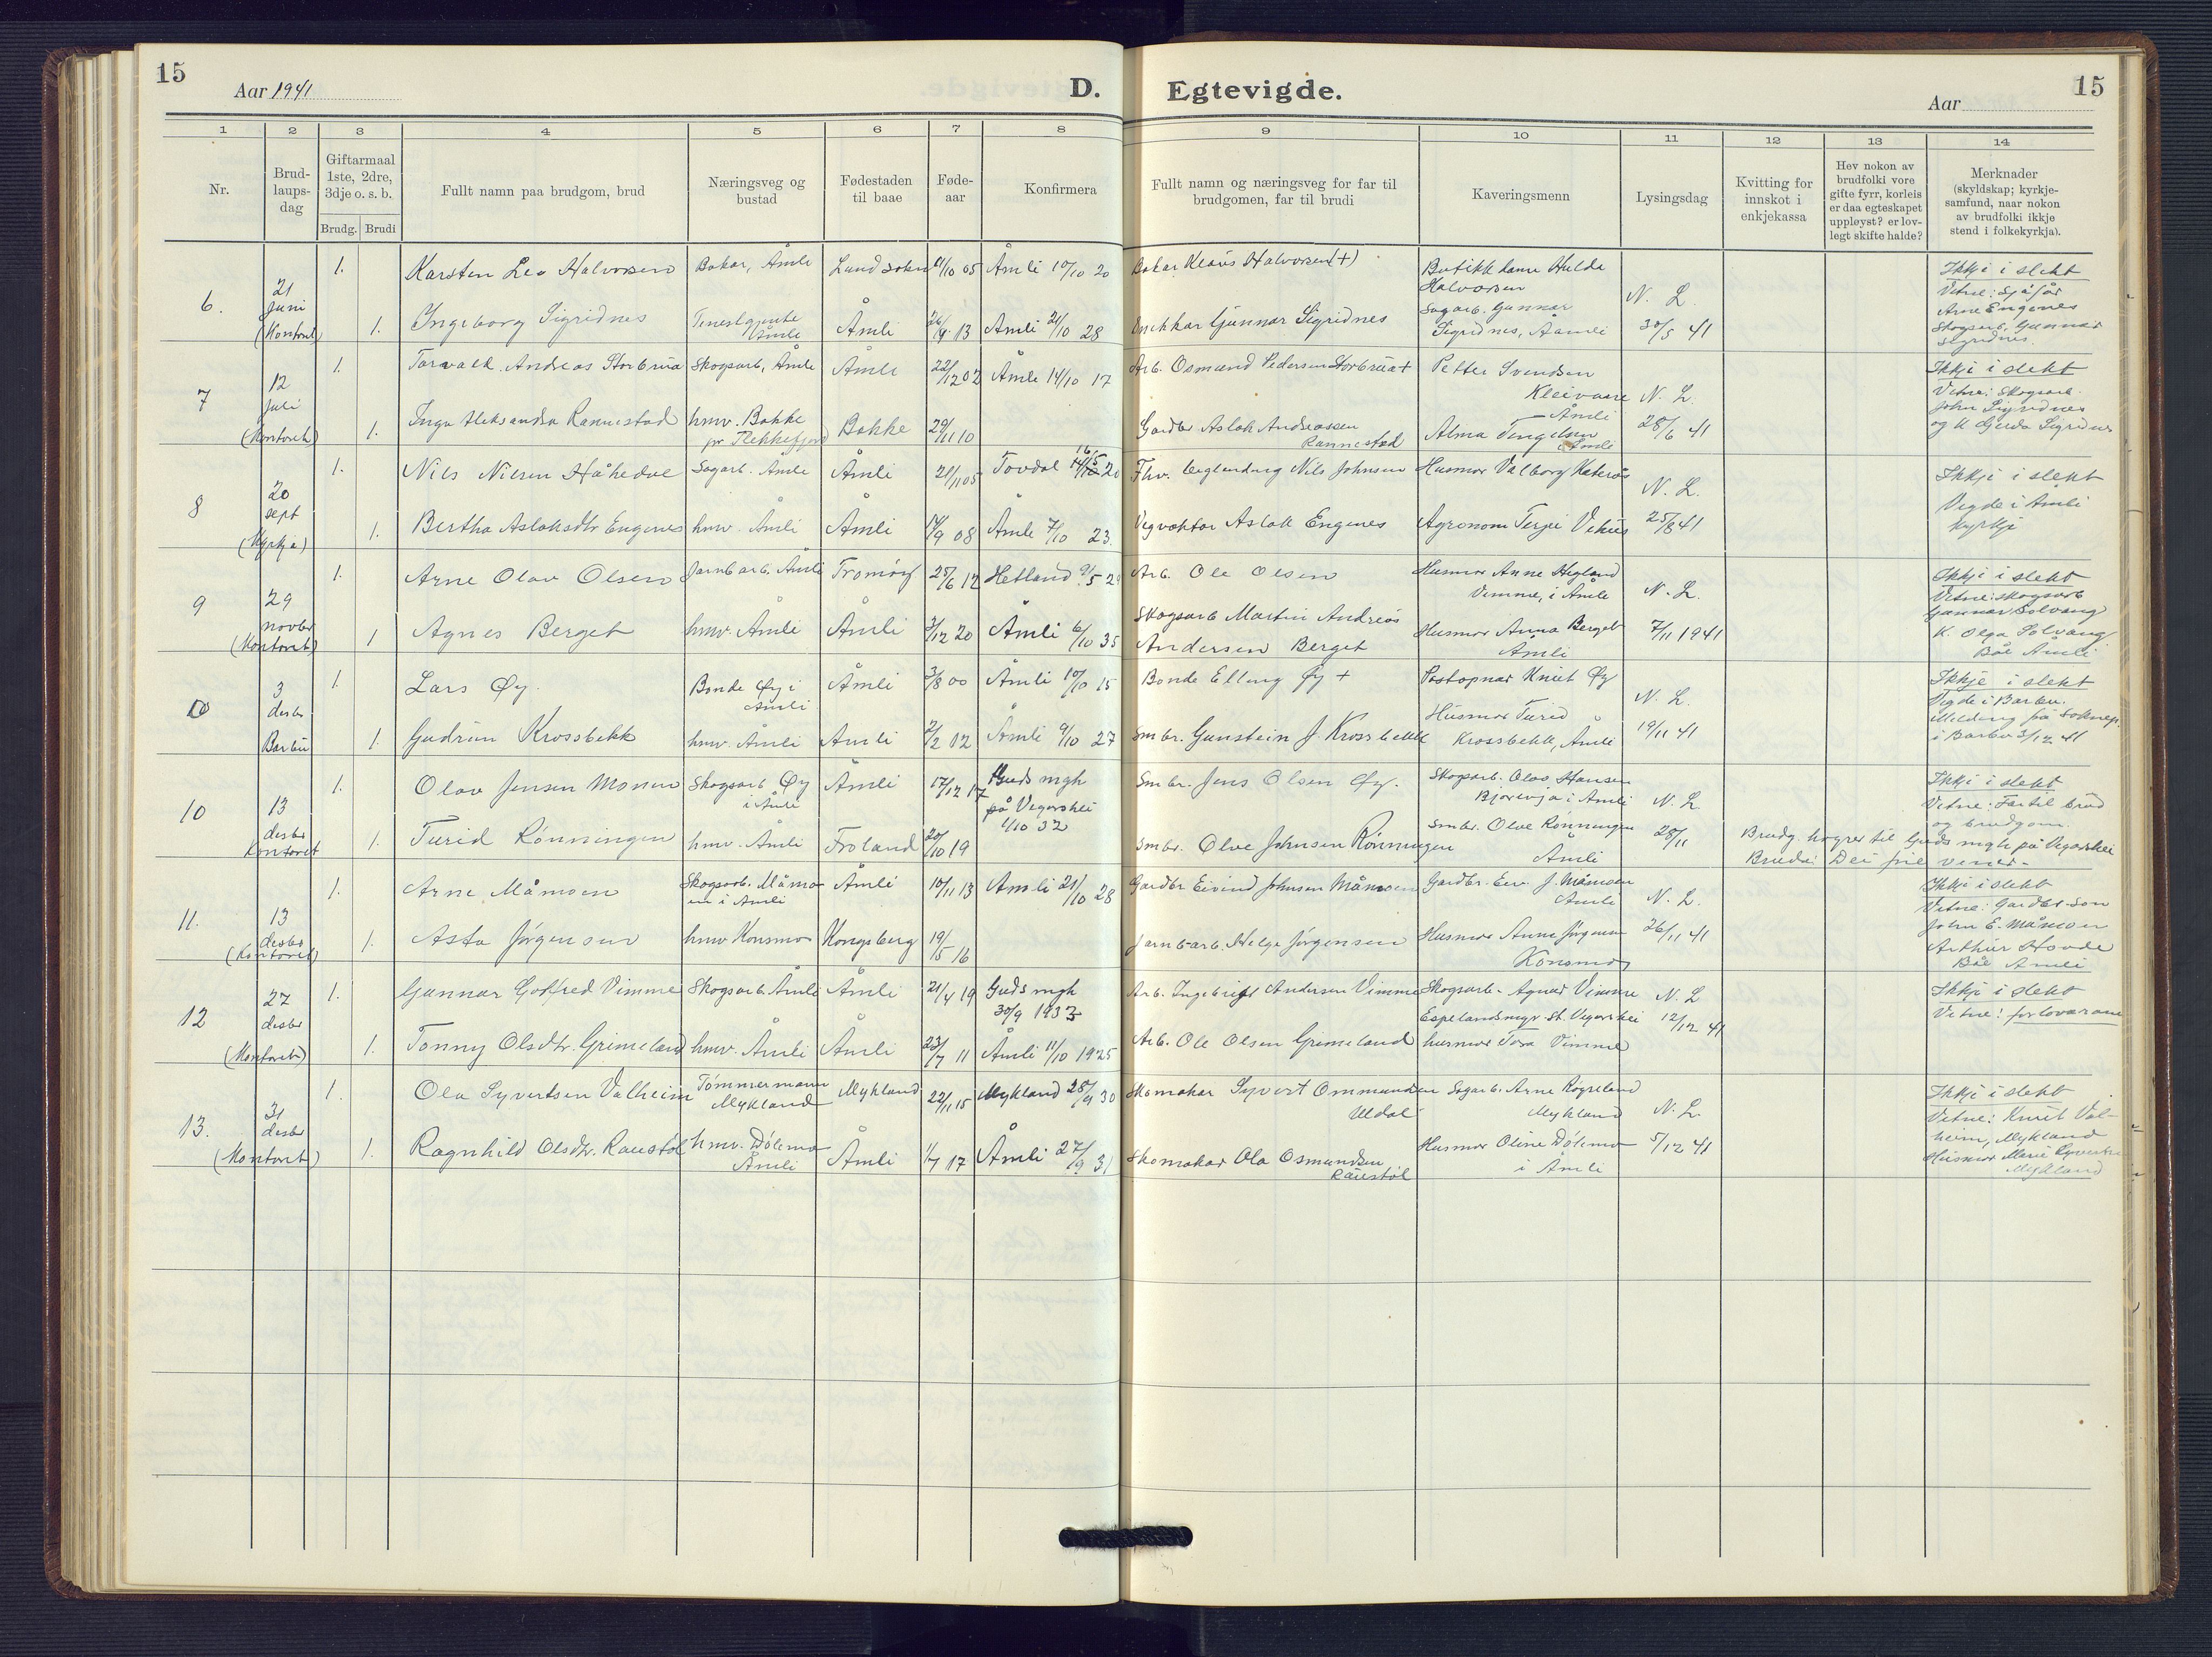 15
Aar 1941
D.
Egtevigde.
Aar
15
1 2 3 4 5 6 7 8 9 10 11 12 13 14
Nr.
Brud-
laups-
dag
Giftarmaal
1ste, 2dre,
3dje o. s. b.
Brudg. Brudi
Fullt namn paa brudgom, brud
Næringsveg og
bustad
Fødestaden
til baae
Føde-
aar
Konfirmera
Fullt namn og næringsveg for far til
brudgomen, far til brudi
Kaveringsmenn
Lysingsdag
Kvitting for
innskot i
enkjekassa
Hev nokon av
brudfolki vore
gifte fyrr, korleis
er daa egteskapet
uppløyst? er lov-
legt skifte halde?
Merknader
(skyldskap; kyrkje-
samfund, naar nokon
av brudfolki ikkje
stend i folkekyrkja).
6.
21
Juni
(Kontoret)
1. Karsten Leo Halvorsen Bakar, Åmli Lund sokn 11/10 05 Åmli 10/10 20
Bakar Klaus Halvorsen (+)
Butikkdame Hulda
Halvorsen
1. Ingeborg Sigridnes Tenestgjente
Åmli
Åmli 26/4 13 Åmli 21/10 28
Gunnar Sigridnes
Sagarb. Gunnar
Sigridnes, Aamli
N. L.
30/5 41
Ikkje i slekt
Vitne: Sjåfør
Arne Engenes
Skogsarb. Gunnar
Sigridnes.
7
12
Juli
(Kontoret)
1. Torvald Andreas Storbrua Skogsarb, Åmli Åmli 22/12 02 Åmli 14/10 17
Arb. Osmund Pedersen Storbrua +
Petter Svendsen
Kleivane
Åmli
1. Inga Aleksandra Rannestad hmv. Bakke
pr Flekkefjord
Bakke 29/11 10
Gardbr Aslak Andreassen
Rannestad
Alma Tengelsen
Åmli
N. L.
28/6 41
Ikkje i slekt
Vitne: Skogsarb.
John Sigridnes
og K Gjerda Sigridnes
8
20
sept
(Kyrkja)
1. Nils Nilsen Håhedal Sagarb. Åmli Åmli 21/11 05 Tovdal 16/5 20
Fhv. Nils Johnsen
Husmor Valborg
1. Bertha Aslaksdtr Engenes hmv. Åmli Åmli 14/9 08 Åmli 7/10 23.
Vegvaktar Aslak Engenes
Agronom Terje Vehus
N. L.
25/8 41
Ikkje i slekt
Vigde i Åmli
kyrkje
9
29
novbr
(Kontoret)
1. Arne Olav Olsen Jarnbarb. Åmli Tromøy 25/6 12 Hetland 9/5 29
Arb. Ole Olsen
Husmor Anne Hegland
Vimme, i Åmli
1 Agnes Berget hmv. Åmli Åmli 3/12 20 Åmli 6/10 35
Skogsarb Martin Andreas
Andersen Berget
Husmor Anna Berget
Åmli
N. L.
7/11 1941
Ikkje i slekt
Vitne: Skogsarb
Gunnar Solvang
K. Olga Solvang
Båe Åmli
10
3
desbr
Barbu
1. Lars Øy. Bonde Øy i
Åmli
Åmli 3/8 00 Åmli 10/10 15
Bonde Elling Øy +
Postopnar Knut Øy
1. Gudrun Krossbekk hmv. Åmli Åmli 2/2 12 Åmli 9/10 27
Smbr. Gunstein J. Krossbekk
Husmor Turid
Krossbekk, Åmli
N. L.
19/11 41
Ikkje i slekt
Vigde i Barbu.
Melding frå Soknep.
i Barbu 3/12 41
10
13
desbr
Kontoret
1. Olav Jensen Monen Skogsarb Øy
i Åmli
Åmli 17/12 17
Guds mgh
på Vegårshei
1/10 32
Smbr. Jens Olsen Øy.
Skogsarb. Olav Hansen
i Åmli
1. Turid Rønningen hmv. Åmli Froland 20/10 19
Smbr. Olve Johnsen Rønningen
Smbr. Olve Rønningen
Åmli
N. L.
28/11
Brudg. høyrer til Guds mgh på Vegårshei
Brudi Dei frie vener.
Ikkje i slekt
Vitne: Far til brud
og brudgom.
11.
13
desbr
(Kontoret)
1. Arne Måmoen Skogsarb. Måmo-
en i Åmli
Åmli 10/11 13 Åmli 21/10 28
Gardbr Eivind Johnsen Måmoen
Gardbr. Eiv. J. Måmoen
Åmli
1. Asta Jørgensen hmv Konsmo Kongsberg 19/5 16
Jarnbarb. Helge Jørgensen
Husmor Anne Jørgensen
Konsmo
N. L.
26/11 41
Ikkje i slekt
Vitne: Gardbr. son
John E. Måmoen
Arthur Hovde
Båe Åmli
12
27
desbr
(Kontoret)
1. Gunnar Gotfred Vimme Skogsarb. Åmli Åmli 21/4 19 Guds mgh
30/9 1933
Arb. Ingebrigt Andersen Vimme
Skogsarb. Agnar Vimme
Espelandsmyr. St. Vegårshei
1. Tonny Olsdtr. Grimeland hmv. Åmli Åmli 23/7 11 Åmli 11/10 1925
Arb. Ole Olsen Grimeland
husmor Tora Vimme
N. L
12/12 41
Ikkje i slekt
Vitne: forlovarane
13.
31
desbr
(Kontoret)
1. Ola Syvertsen Valheim Tømmermann
Mykland
Mykland 22/11 15 Mykland 28/9 30
Skomakar Syvert Ommundsen
Uldal
Sagarb. Arne Røyseland
Mykland
1. Ragnhild Olsdtr. Raustøl hmv. Dølemo
Åmli
Åmli 1/7 17 Åmli 27/9 31
Skomakar Ola Osmundsen
Raustøl
Husmor Oline Dølemo
i Åmli
N. L.
5/12 41
Ikkje i slekt
Vitne: Knut Val-
heim, Mykland
Husmor Marie Syvertsen
Mykland